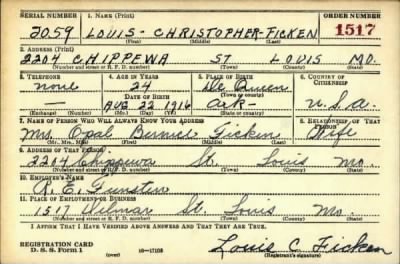 SERIAL NUMBER 1. NAME (Print) ORDER NUMBER
2059 LOUIS - CHRISTOPHER - FICKEN 1517
(First) (Middle) (Last)
2. ADDRESS (Print)
2204 CHIPPEWA ST LOUIS MO.
(Number and street or R. F. D. number) (Town) (County) (State)
3. TELEPHONE 4. AGE IN YEARS 5. PLACE OF BIRTH 6. COUNTRY OF CITIZENSHIP
none 24 De Queen
— DATE OF BIRTH (Town or county)
AUG 22 1916 Ark- U.S.A.
(Exchange) (Number) (Mo.) (Day) (Yr.) (State or country)
7. NAME OF PERSON WHO WILL ALWAYS KNOW YOUR ADDRESS 8. RELATIONSHIP OF THAT PERSON
Mrs. Opal Bernice Ficken Wife
(Mr., Mrs., Miss) (First) (Middle) (Last)
9. ADDRESS OF THAT PERSON
2204 Chippewa St. Louis Mo.
(Number and street or R. F. D. number) (Town) (County) (State)
10. EMPLOYER'S NAME
R. E. Funsten
11. PLACE OF EMPLOYMENT OR BUSINESS
1517 Delmar St. Louis Mo.
(Number and street or R. F. D. number) (Town) (County) (State)
I AFFIRM THAT I HAVE VERIFIED ABOVE ANSWERS AND THAT THEY ARE TRUE.
REGISTRATION CARD
D. S. S. Form 1 (over) 16—17105 Louis C. Ficken
(Registrant's signature)